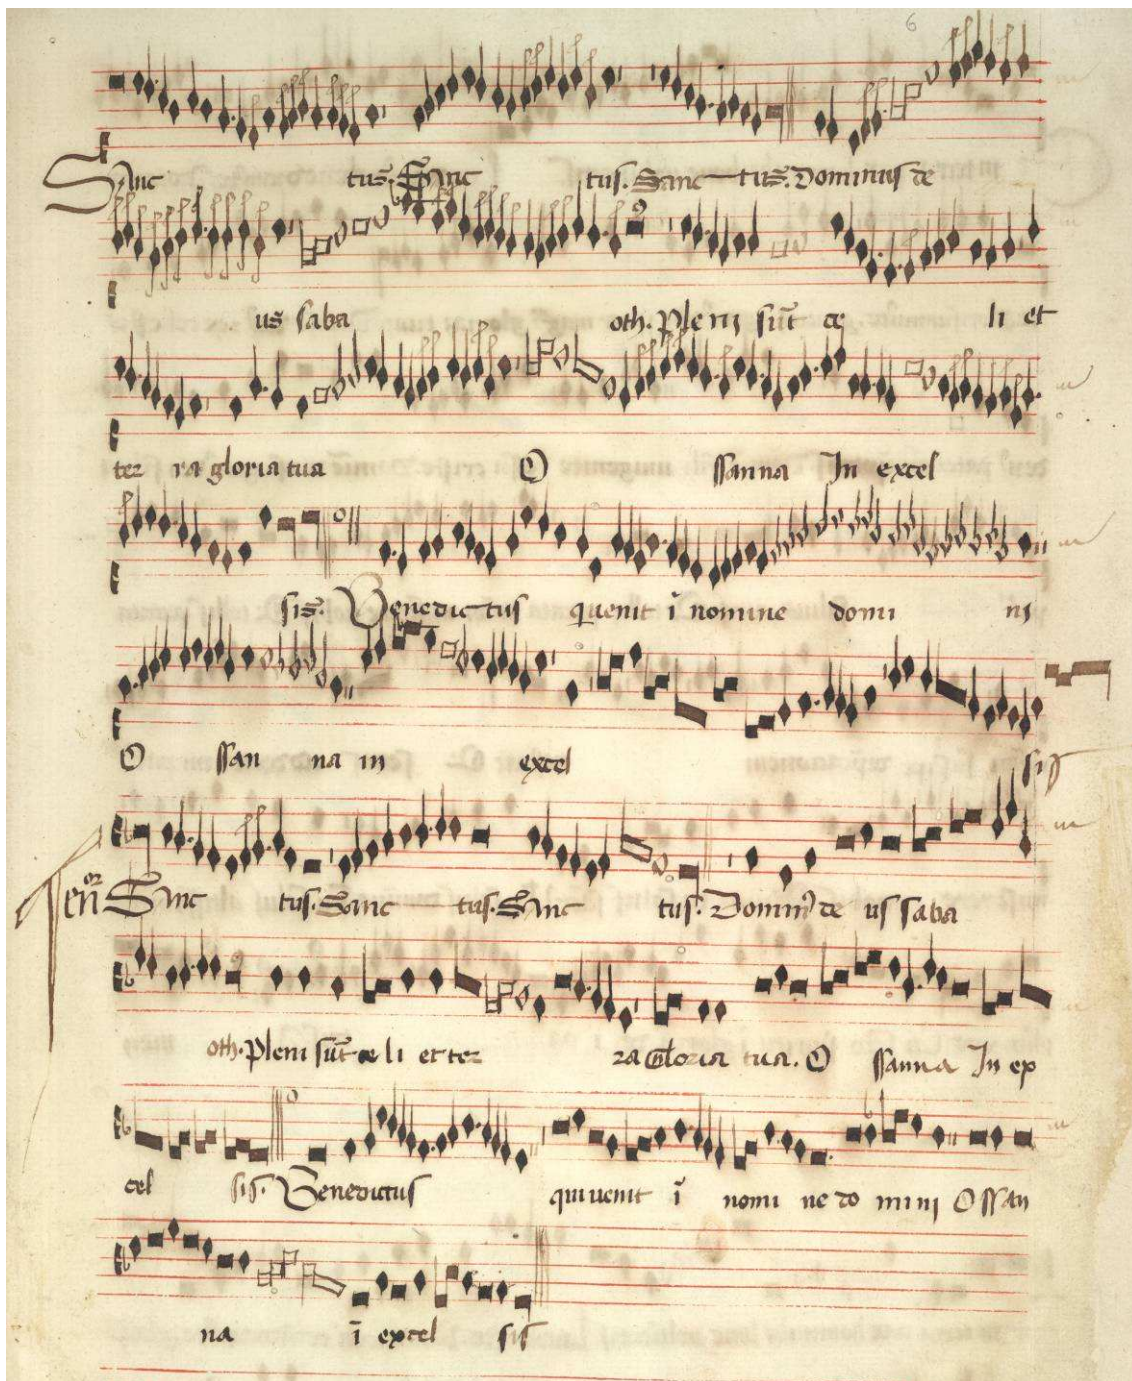 6
Sanc tus. Sanc tus. Sanc tus. Dominus de
us saba oth. Pleni sūt ce li et
ter ra gloria tua O ssanna In excel
sis. Benedictus qi uenit ī nomine domi ni
O ssan na in excel sis
Tenor Sanc tus. Sanc tus. Sanc tus. Domin9 de us saba
oth. Pleni sūt ce li et ter ra Gloria tua. O ssanna In ex
cel sis. Benedictus qui uenit ī nomi ne do mi ni O ssan
na ī excel sis